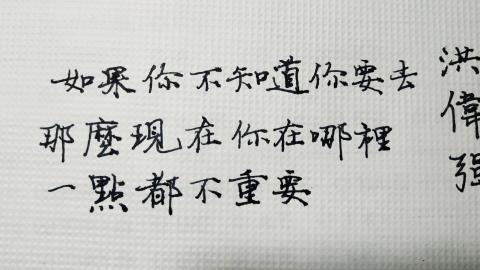 如果你不知道你要去
那麼現在你在哪裡
一點都不重要
洪偉强